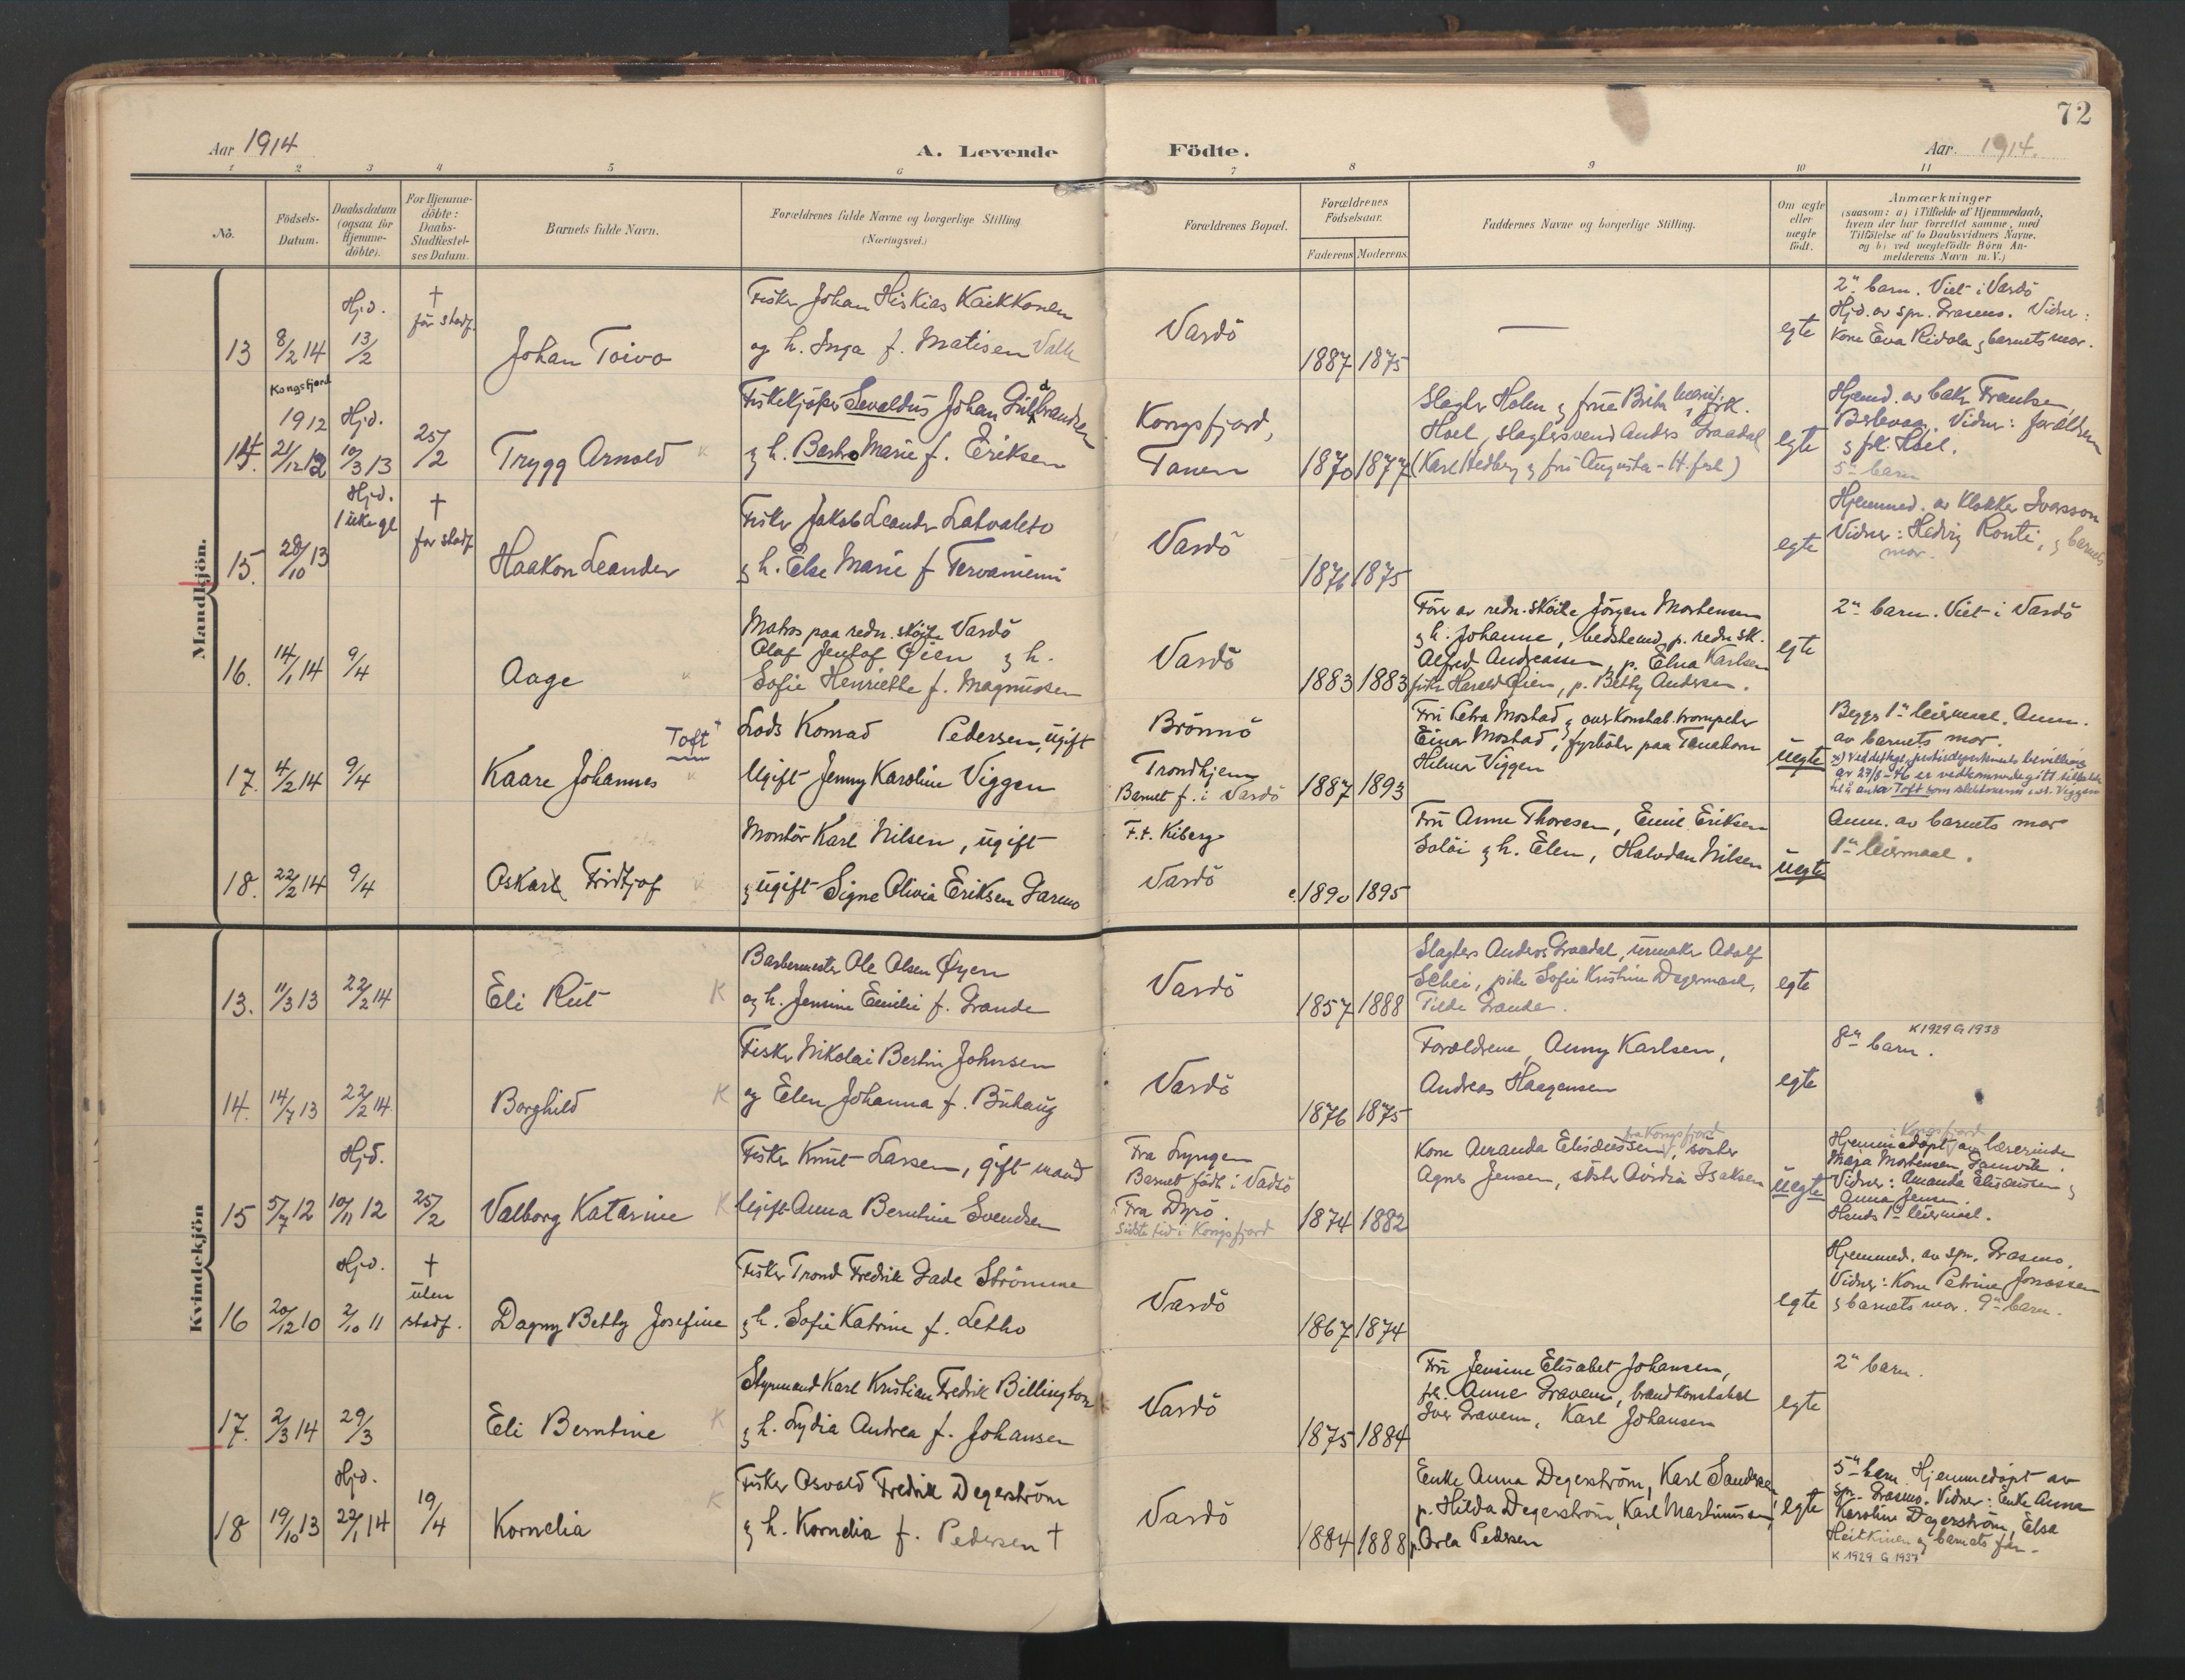 72
Aar 1914
A. Levende
Födte.
Aar. 1914.
1 2 3 4 5 6 7 8 9 10 11
No.
Födsels-
Datum.
Daabsdatum
(ogsaa for
Hjemme-
döbte).
For Hjemme-
döbte:
Daabs-
Stadfæstel-
ses Datum.
Barnets fulde Navn.
Forældrenes fulde Navne og borgerlige Stilling
(Næringsvei.)
Forældrenes Bopæl.
Forældrenes
Födselsaar.
Faderens Moderens
Faddernes Navne og borgerlige Stilling.
Om ægte
eller
uægte
födt.
Anmærkninger
(saasom: a) i Tilfælde af Hjemmedaab,
hvem der har forrettet samme, med
Tilföielse af to Daabsvidners Navne.
og b) ved uægtefödte Börn An-
melderens Navn m. V.)
Mandkjön.
13
8/2 14
Hjd.
13/2
†
før stadf.
Johan Toivo
Fisker Johan Hiskias Kaikkonen
og h. Inga f. Matisen Valle
Vardö
1887 1875
—
egte
2" barn. Viet i Vardö
Hjd. av spr. Grasmo. Vidner:
Kone Eva Ridola & barnets mor.
14.
Kongsfjord
1912
21/12 12
Hjd.
10/3 13
25/2
Trygg Arnold K
Fiskekjøper Sevaldus Johan Guldbrandsen
& h. Bastro Marie f. Eriksen
Kongsfjord,
Tanen
1870 1877
Slagter Holm & frue Brita Marie, frk.
Hoel, slagtersvend Anders Graadal
(Karl Hedberg & fru Augusta - H.fest)
egte
Hjemd. av bakr Frantsen
Berlevaag. Vidner: forældrene
& frk. Hoel.
5" barn
15.
28/10 13
Hjd.
1 uke gl
†
før stadf
Haakon Leander
Fisker Jakob Leander Latvaleto
& h. Else Marie f Tervaniemi
Vardö
1876 1875
egte
Hjemmed. av Klokker Iversson
Vidner: Hedvig Ronti, & barnets
mor.
16.
14/1 14
9/4
Aage
Matros paa redn. skøite Vardö
Olaf Jentof Øien & h.
Sofie Henriette f. Magnussen
Vardö
1883 1883
Förer av redn. skøite Jörgen Mortensen
& h. Johanne, bedstemd. p. redn sk.
Alfred Andreassen, p. Elna Karlsen
fisker Harald Øien, p. Betty Andersen.
egte
2" barn. Viet i Vardö
17.
4/2 14
9/4
Kaare Johannes Toft +
Lods Konrad Pedersen, ugift
Ugift Jenny Karoline Viggen
Brönnö
Trondhjem
Barnet f. i Vardö
1887 1893
Fru Petra Mostad & overkonstab. trompeter
Einar Mostad, fyrböter paa Tanahorn
Hilmar Viggen
uegte
Begges 1" leiermaal. Anm.
av barnets mor.
x) Ved det kgl. justisdepartements bevilling
av 27/8-46 er vedkommende gitt tillatelse
til å anta Toft som slektsnavn i st. Viggen
18.
22/2 14
9/4
Oskar Fridtjof
Montör Karl Nilsen, ugift
& ugift Signe Olivia Eriksen Garmo
F.t. Kiberg
Vardö
c. 1890 1895
Fru Anne Thoresen, Emil Eriksen
Soløi & h. Elen, Halvdan Nilsen
uegte
Anm. av barnets mor
1" leiermaal.
Kvindekjön
13.
11/3 13
22/2 14
Eli Rut K
Barbermester Ole Olsen Øyen
og h. Jensine Emilie f. Grande
Vardö
1857 1888
Slagters Anders Graadal, urmaker Adolf
Schei, pike Sofie Kristine Degermark,
Tilda Grande.
egte
14.
14/7 13
22/2 14
Borghild K
Fisker Nikolai Bertin Johnsen
og Elen Johanna f. Buhaug
Vardö
1876 1875
Forældrene, Anny Karlsen,
Andreas Haagensen
egte
8" barn. K 1929 G 1938
15
5/7 12
Hjd.
10/11 12
25/2
Valborg Katarine K
Fisker Knut Larsen, gift mand
Ugift Anna Berntine Svendsen
Fra Lyngen
Barnet født i Vadsö
Fra Dyrö
sidste tid i Kongsfjord
1874 1882
Kone Amanda Elisæussen fra Kongsfjord, søster
Agnes Jensen, søster Avrdia Isaksen
uegte
Hjemmedøpt i Kongsfjord av lærerinde
Maja Mortensen, Gamvik.
Vidner: Amanda Elisæusen &
Anna Jensen.
Hends 1" leiermaal.
16
20/12 10
Hjd.
2/10 11
†
uten
stadf.
Dagny Betty Josefine
Fisker Trond Fredrik Gade Strömme
& h. Sofie Katrine f. Letho
Vardö
1867 1874
egte
Hjemmed. av spr. Grasmo.
Vidner: Kone Petrine Jonassen
& barnets mor. 9" barn.
17.
2/3 14
29/3
Eli Berntine K
Styrmand Karl Kristian Fredrik Billington
& h. Lydia Andrea f. Johansen
Vardö
1875 1884
Fru Jensine Elisabet Johansen,
frk. Anne Gravem, brandkonstabel
Iver Gravem, Karl Johansen
egte
2" barn.
18
19/10 13
Hjd.
22/1 14
19/4
Kornelia K
Fisker Osvald Fredrik Degerström
& h. Kornelia f. Pedersen †
Vardö
1884 1888
Enke Anna Degerström, Karl Sandersen,
p. Hilda Degerström, Karl Martinusen,
p. Orla Pedersen
egte
5" barn. Hjemmedøpt av
spr. Grasmo. Vidner: Enke Anna
Karoline Degerström, Elsa
Heitkinen og barnets far.
K 1929 G 1937